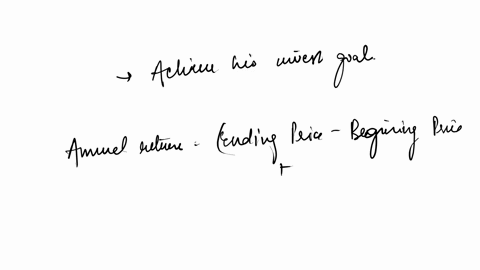 → Achieve his invest goal.
Annual return = (ending Price - Beginning Price
+